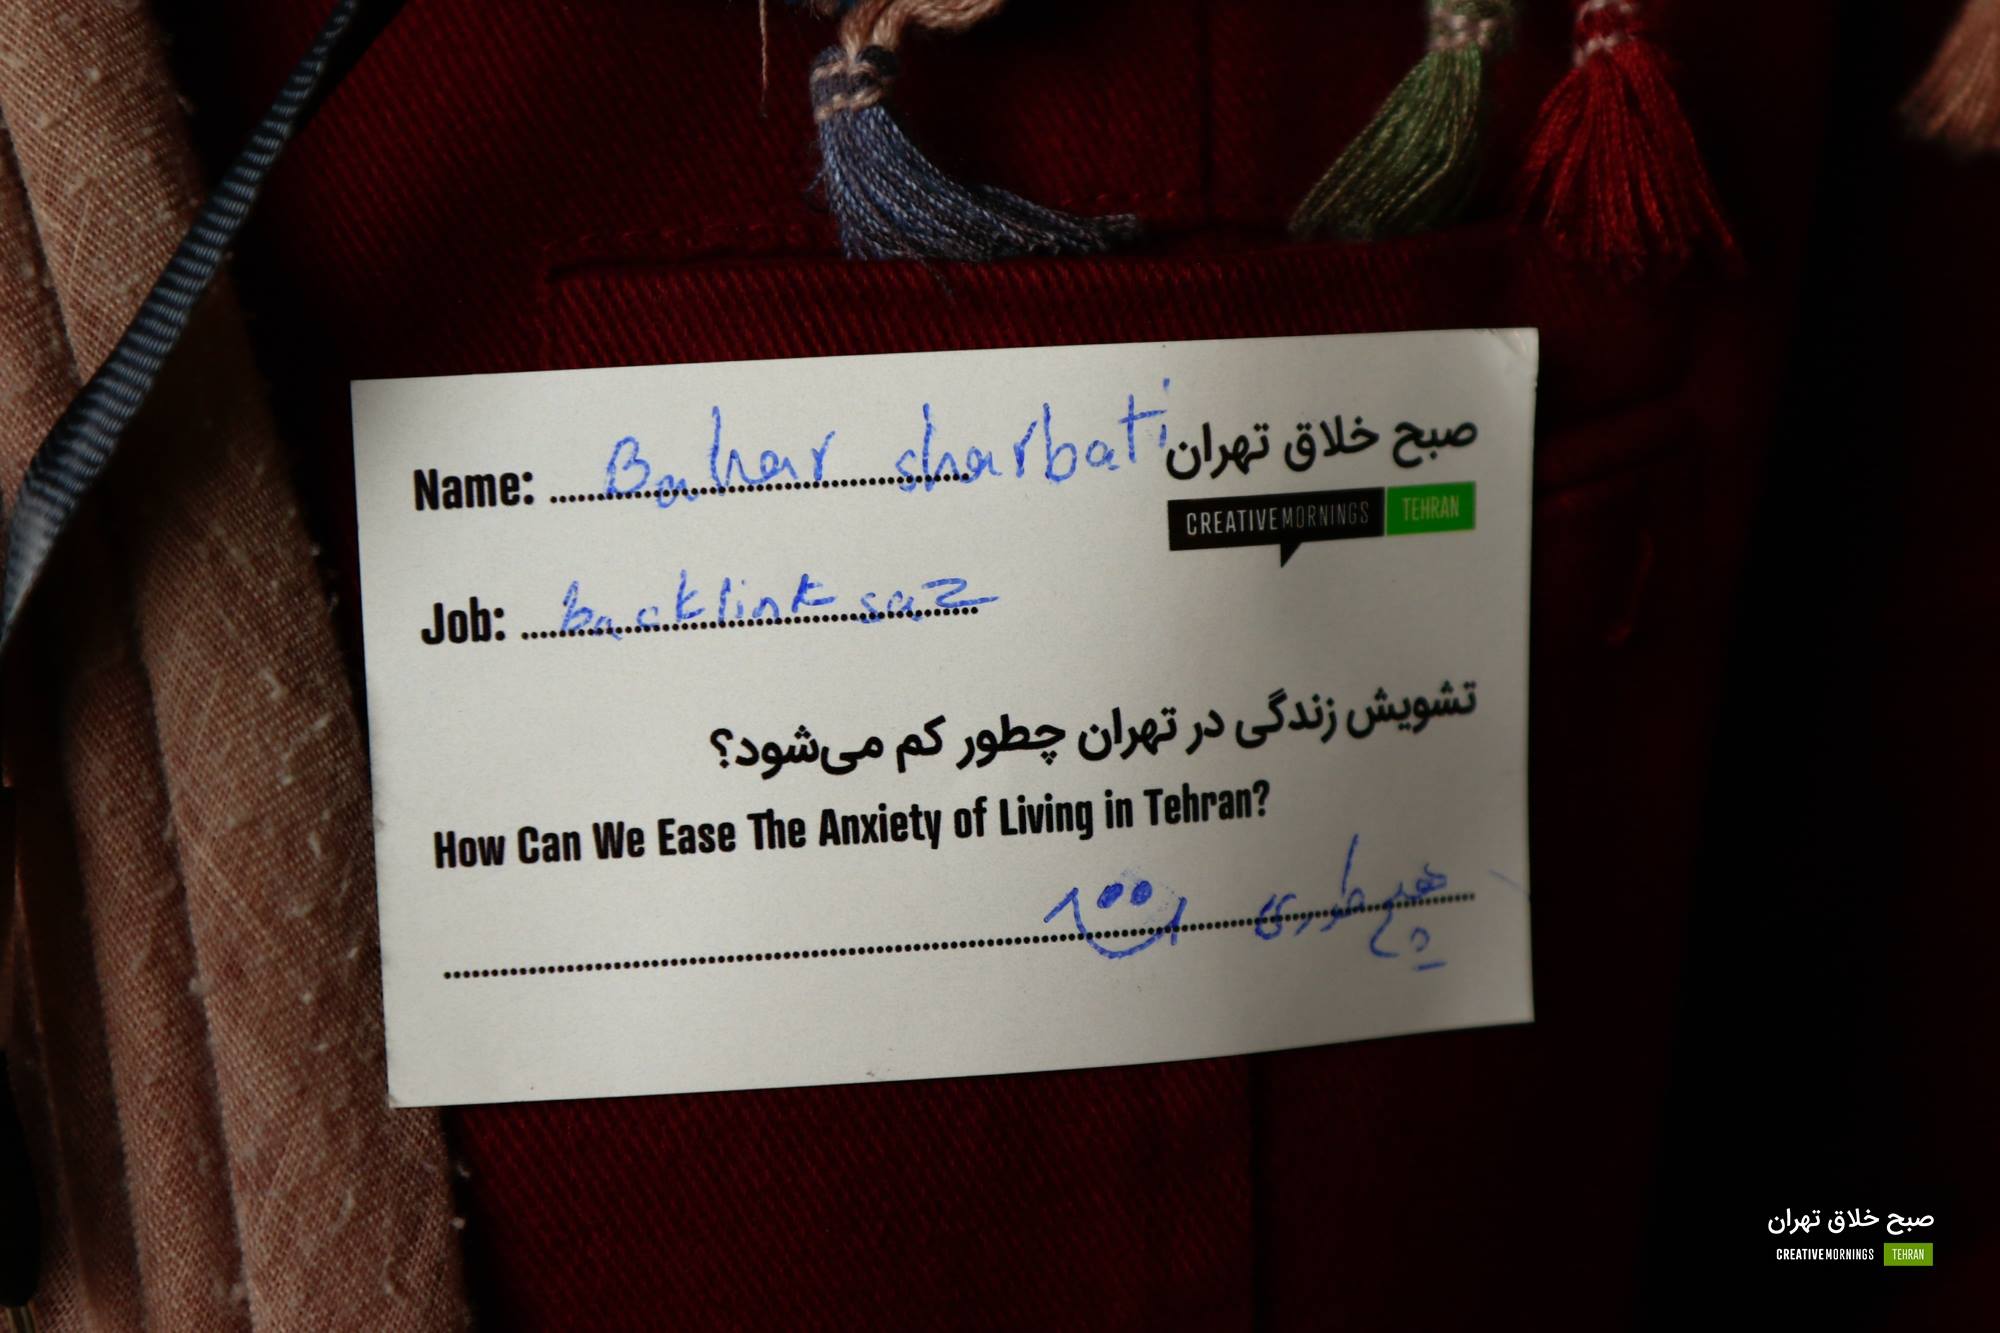 Name: Bahar sharbati
صبح خلاق تهران
CREATIVEMORNINGS TEHRAN
Job: backlink saz
تشویش زندگی در تهران چطور کم می‌شود؟
How Can We Ease The Anxiety of Living in Tehran?
هیچ طوری
صبح خلاق تهران
CREATIVEMORNINGS TEHRAN